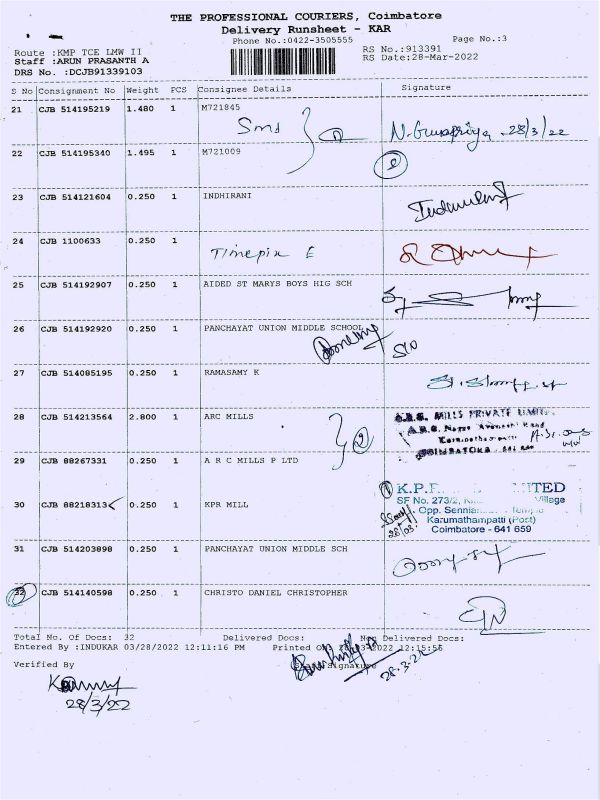 THE PROFESSIONAL COURIERS, Coimbatore
Delivery Runsheet - KAR
Phone No.:0422-3505555 Page No.:3
Route :KMP TCE LMW II RS No.:913391
Staff :ARUN PRASANTH A RS Date:28-Mar-2022
DRS No. :DCJB91339103
S No Consignment No Weight PCS Consignee Details Signature
21 CJB 514195219 1.480 1 M721845
28/3/22
22 CJB 514195340 1.495 1 M721009
23 CJB 514121604 0.250 1 INDHIRANI
24 CJB 1100633 0.250 1
Timepix E
25 CJB 514192907 0.250 1 AIDED ST MARYS BOYS HIG SCH
26 CJB 514192920 0.250 1 PANCHAYAT UNION MIDDLE SCHOOL
27 CJB 514085195 0.250 1 RAMASAMY K
28 CJB 514213564 2.800 1 ARC MILLS
MILLS PRIVATE
2
29 CJB 88267331 0.250 1 A R C MILLS P LTD
1 K.P.
SF No. 273/2, Village
30 CJB 88218313 0.250 1 KPR MILL
Opp.
Karumathampatti (Post)
Coimbatore - 641 659
31 CJB 514203898 0.250 1 PANCHAYAT UNION MIDDLE SCH
32 CJB 514140598 0.250 1 CHRISTO DANIEL CHRISTOPHER
Total No. Of Docs: 32 Delivered Docs: Non Delivered Docs:
Entered By :INDUKAR 03/28/2022 12:11:16 PM Printed On: 28-03-2022 12:15:56
Verified By Signature
28.3.22
28/3/22